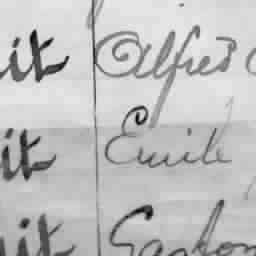 it Alfred
it Emile
it Gaston